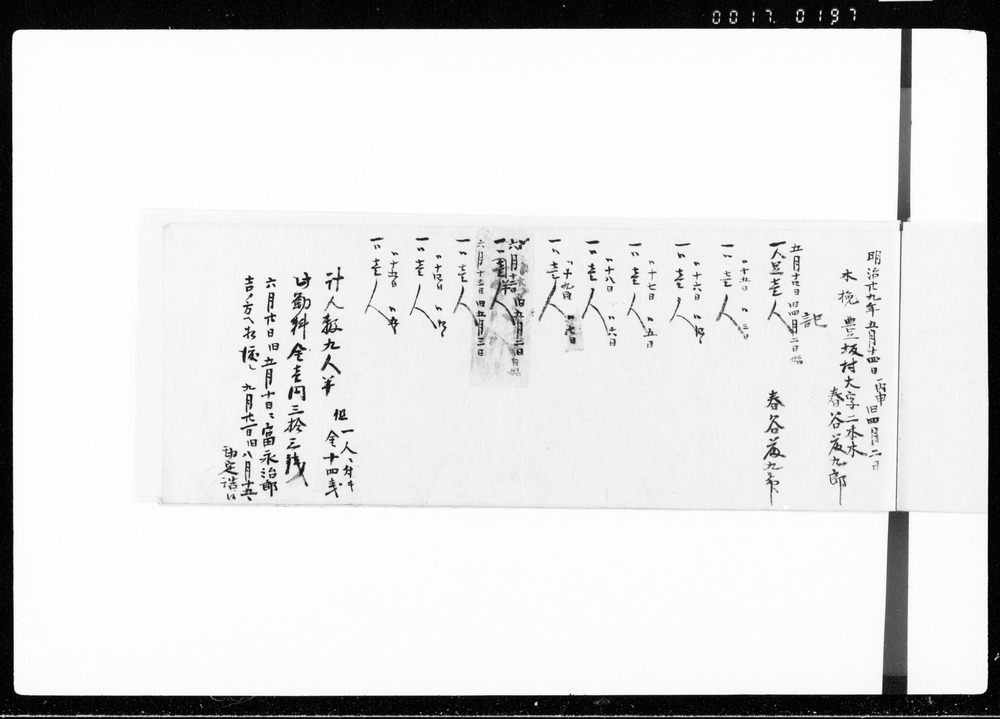 0017.0197
明治廿九年五月十四日 丙申 旧四月二日
木挽 豊坂村大字二本木
春谷茂九郎
記
五月十四日 旧四月二日始
一人足壱人
春谷茂九郎
〃十五日 〃三日
一〃壱人
〃十六日 〃四日
一〃壱人
〃十七日 〃五日
一〃壱人
〃十八日 〃六日
一〃壱人
〃十九日 〃七日
一〃壱人
六月十二日 旧五月二日
一〃壱人半
六月十三日 旧五月三日
一〃壱人
〃十四日 〃四日
一〃壱人
〃十五日 〃五日
一〃壱人
計人数九人半
但 一人ニ付
金十四戋
此勤料金壱円三拾三銭
六月廿日旧五月十日ニ富永治郎
吉方へ相渡し 九月廿一日旧八月十五
勘定